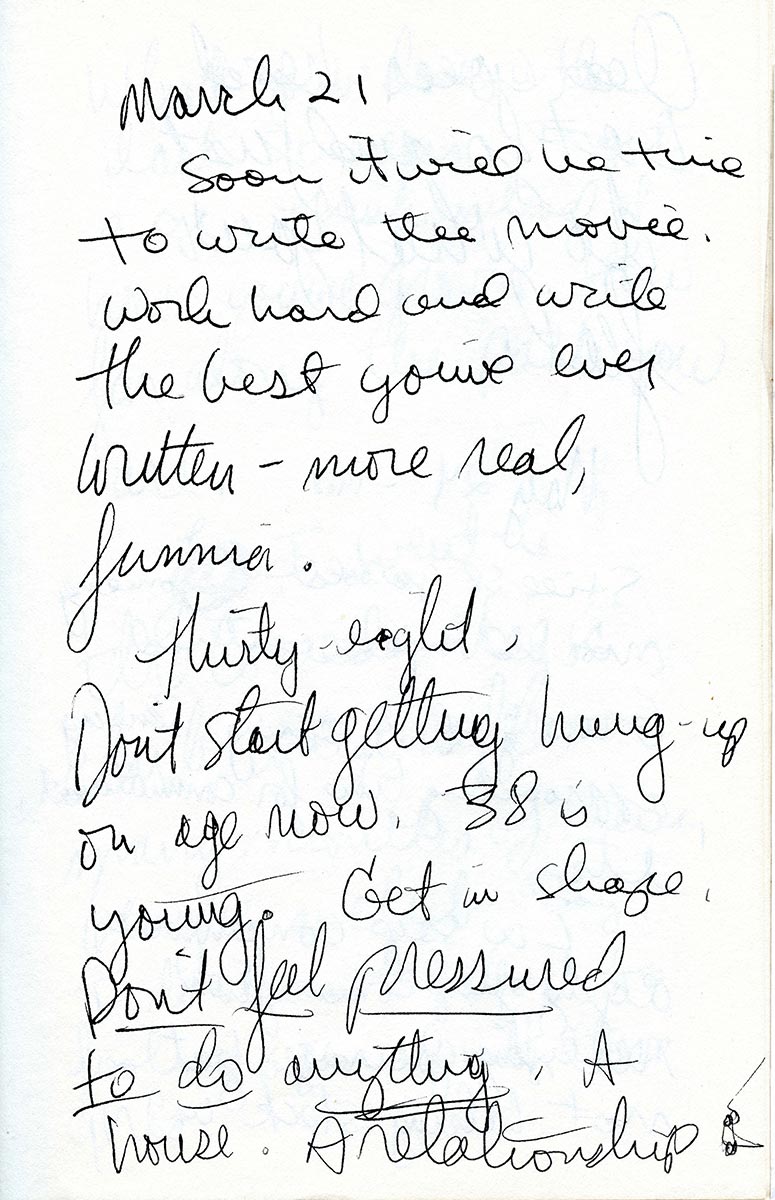 March 21
Soon it will be time
to write the movie.
Work hard and write
the best you've ever
written - more real,
funnier.
Thirty-eight.
Don't start getting hung-up
on age now. 38 is
young. Get in shape.
Don't feel pressured
to do anything. A
house. A relationship